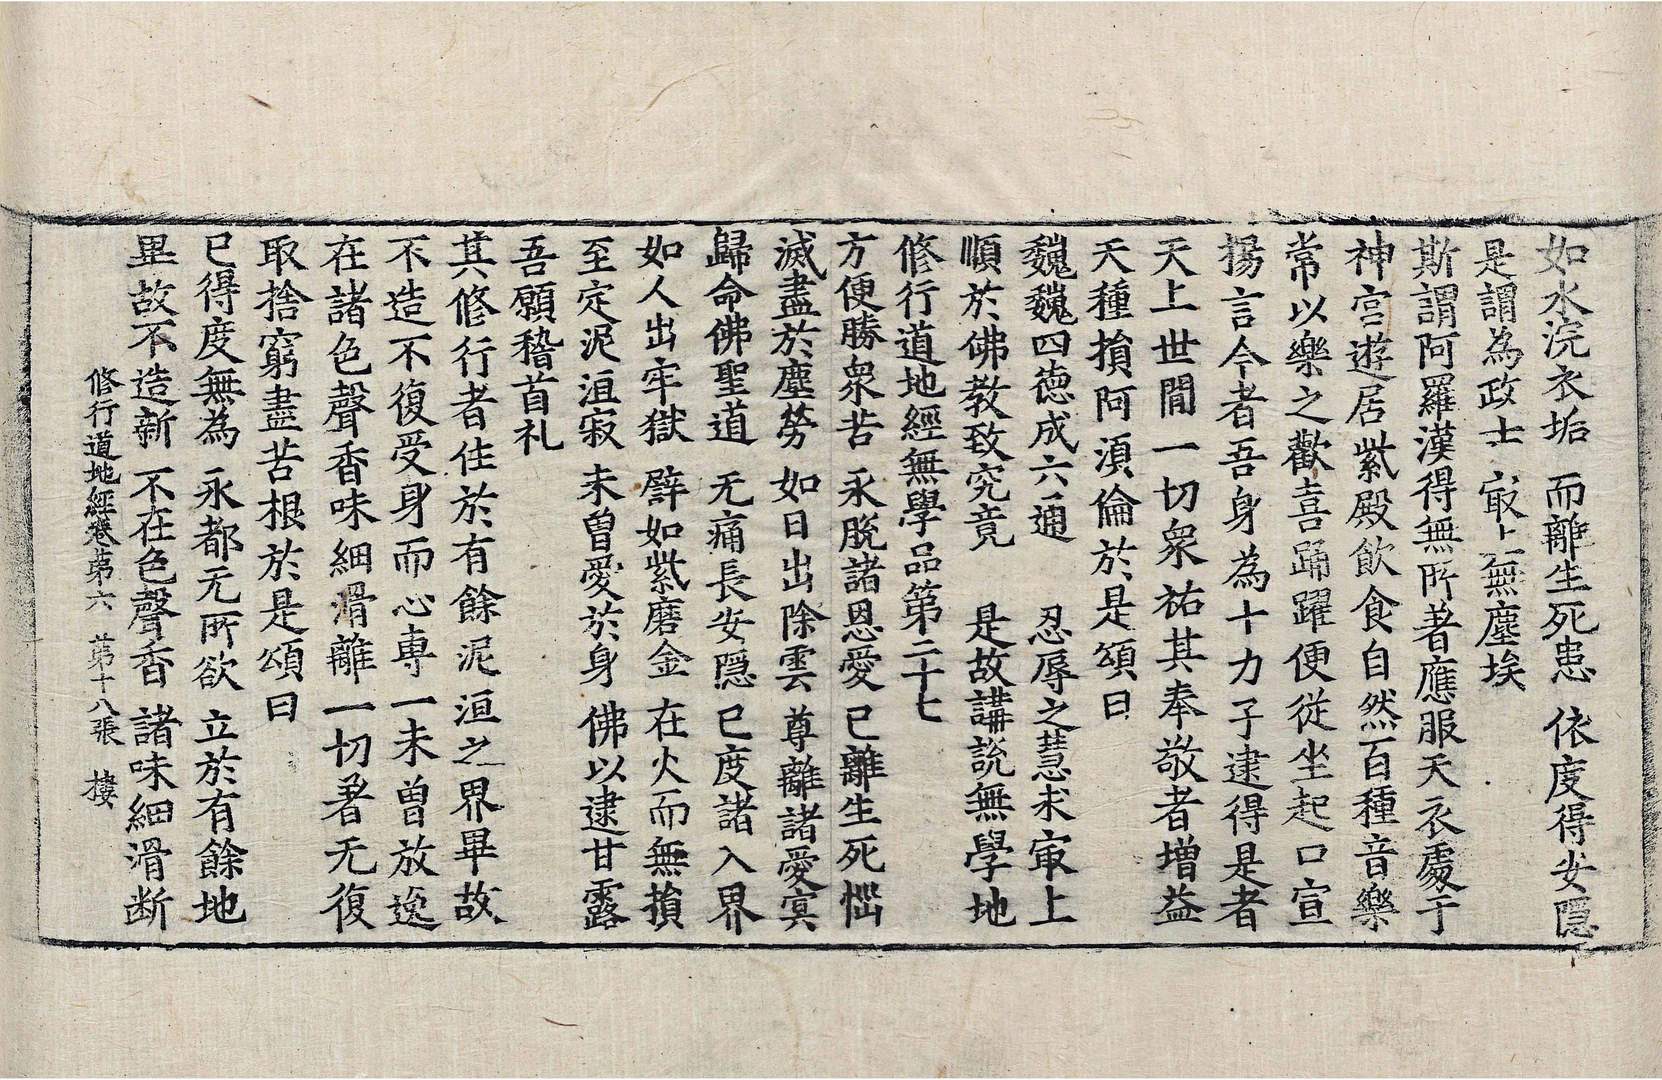 如水浣衣垢　而離生死患　依度得安隱
是謂為政士　㝡上無塵埃
斯謂阿羅漢得無所著應服天衣處于
神宮遊居紫殿飲食自然百種音樂
常以樂之歡喜踊躍便從坐起口宣
揚言今者吾身為十力子逮得是者
天上世間一切眾祐其奉敬者增益
天種損阿須倫於是頌曰
巍巍四德成六通　忍辱之慧求㝡上
順於佛教致究竟　是故講說無學地
修行道地經無學品第二十七
方便勝眾苦　永脫諸恩愛　已離生死惱
滅盡於塵勞　如日出除雲　尊離諸愛冥
歸命佛聖道　无痛長安隱　已度諸入界
如人出牢獄　譬如紫磨金　在火而無損
至定泥洹寂　未曾愛於身　佛以逮甘露
吾願稽首礼
其修行者住於有餘泥洹之界畢故
不造不復受身而心專一未曾放逸
在諸色聲香味細滑離一切著无復
取捨窮盡苦根於是頌曰
已得度無為　永都无所欲　立於有餘地
畢故不造新　不在色聲香　諸味細滑断
修行道地經卷第六　第十八張　樓